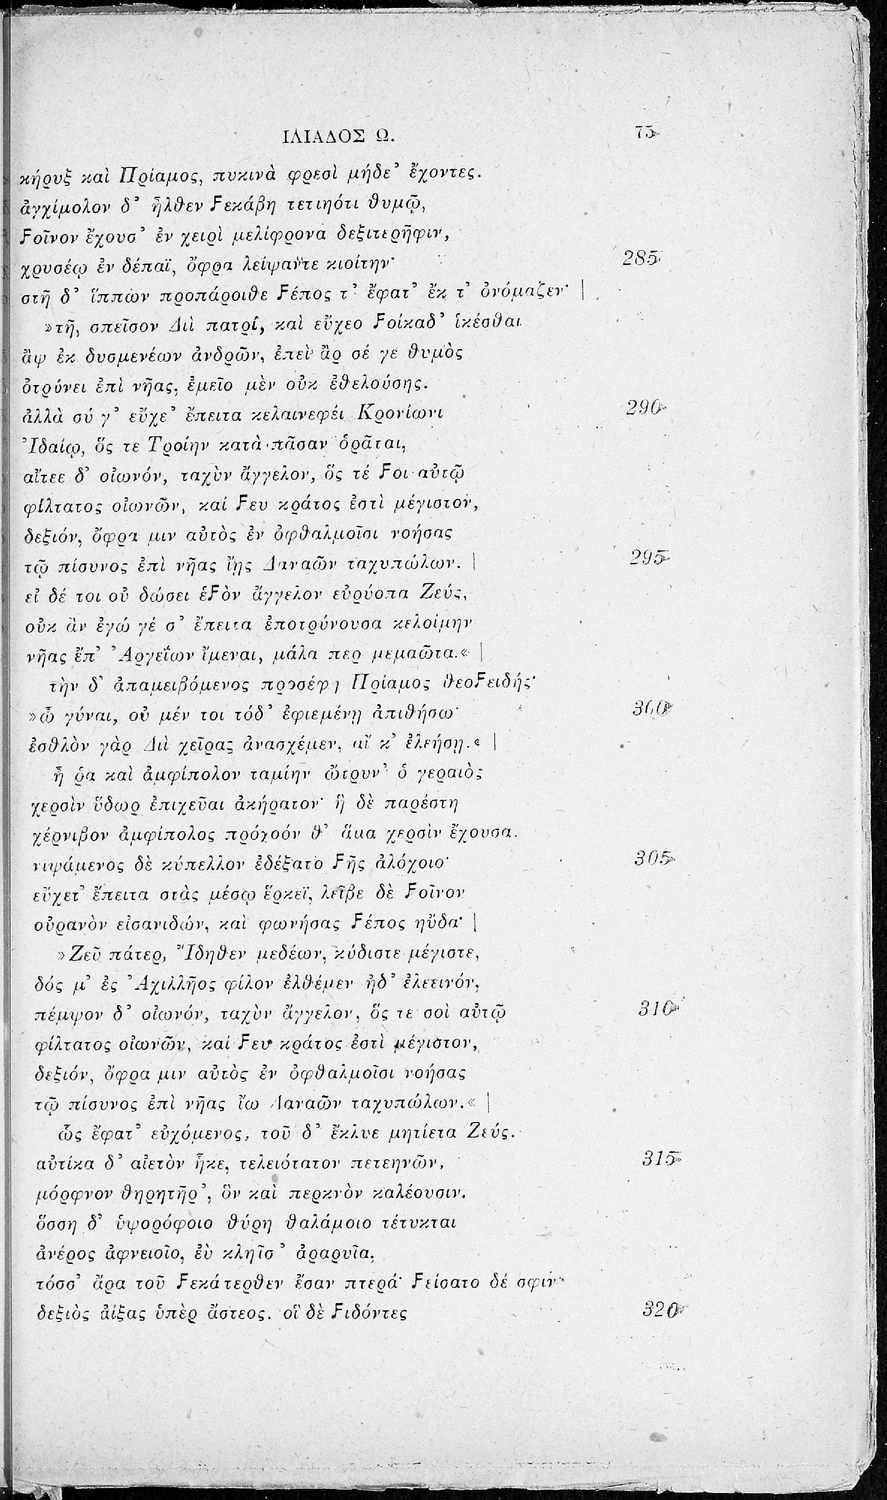 ΙΛΙΑΔΟΣ Ω. 75
κήρυξ καὶ Πρίαμος, πυκινὰ φρεσὶ μήδε᾽ ἔχοντες.
ἀγχίμολον δ᾽ ἦλθεν Ϝεκάβη τετιηότι θυμῷ,
Ϝοῖνον ἔχουσ᾽ ἐν χειρὶ μελίφρονα δεξιτερῆφιν,
χρυσέῳ ἐν δέπαϊ, ὄφρα λείψαντε κιοίτην· 285
στῆ δ᾽ ἵππων προπάροιθε Ϝέπος τ᾽ ἔφατ᾽ ἔκ τ᾽ ὀνόμαζεν· |
»τῆ, σπεῖσον Διὶ πατρί, καὶ εὔχεο Ϝοίκαδ᾽ ἱκέσθαι
ἂψ ἐκ δυσμενέων ἀνδρῶν, ἐπεὶ ἂρ σέ γε θυμὸς
ὀτρύνει ἐπὶ νῆας, ἐμεῖο μὲν οὐκ ἐθελούσης.
ἀλλὰ σύ γ᾽ εὔχε᾽ ἔπειτα κελαινεφέι Κρονίωνι 290
Ἰδαίῳ, ὅς τε Τροίην κατὰ πᾶσαν ὁρᾶται,
αἴτεε δ᾽ οἰωνόν, ταχὺν ἄγγελον, ὅς τέ Ϝοι αὐτῷ
φίλτατος οἰωνῶν, καί Ϝευ κράτος ἐστὶ μέγιστον,
δεξιόν, ὄφρα μιν αὐτὸς ἐν ὀφθαλμοῖσι νοήσας
τῷ πίσυνος ἐπὶ νῆας ἴῃς Δαναῶν ταχυπώλων. | 295
εἰ δέ τοι οὐ δώσει ἑϜὸν ἄγγελον εὐρύοπα Ζεύς,
οὐκ ἂν ἐγώ γέ σ᾽ ἔπειτα ἐποτρύνουσα κελοίμην
νῆας ἔπ᾽ Ἀργεΐων ἴμεναι, μάλα περ μεμαῶτα.« |
τὴν δ᾽ ἀπαμειβόμενος προσέφη Πρίαμος θεοϜειδής·
»ὦ γύναι, οὐ μέν τοι τόδ᾽ ἐφιεμένῃ ἀπιθήσω· 300
ἐσθλὸν γὰρ Διὶ χεῖρας ἀνασχέμεν, αἴ κ᾽ ἐλεήσῃ.« |
ἦ ῥα καὶ ἀμφίπολον ταμίην ὤτρυν᾽ ὁ γεραιὸς
χερσὶν ὕδωρ ἐπιχεῦαι ἀκήρατον· ἣ δὲ παρέστη
χέρνιβον ἀμφίπολος πρόχοόν θ᾽ ἅμα χερσὶν ἔχουσα.
νιψάμενος δὲ κύπελλον ἐδέξατο Ϝῆς ἀλόχοιο· 305
εὔχετ᾽ ἔπειτα στὰς μέσῳ ἕρκεϊ, λεῖβε δὲ Ϝοῖνον
οὐρανὸν εἰσανιδών, καὶ φωνήσας Ϝέπος ηὔδα· |
»Ζεῦ πάτερ, Ἴδηθεν μεδέων, κύδιστε μέγιστε,
δός μ᾽ ἐς Ἀχιλλῆος φίλον ἐλθέμεν ἠδ᾽ ἐλεεινόν,
πέμψον δ᾽ οἰωνόν, ταχὺν ἄγγελον, ὅς τε σοὶ αὐτῷ 310
φίλτατος οἰωνῶν, καί Ϝευ κράτος ἐστὶ μέγιστον,
δεξιόν, ὄφρα μιν αὐτὸς ἐν ὀφθαλμοῖσι νοήσας
τῷ πίσυνος ἐπὶ νῆας ἴω Δαναῶν ταχυπώλων.« |
ὣς ἔφατ᾽ εὐχόμενος, τοῦ δ᾽ ἔκλυε μητίετα Ζεύς.
αὐτίκα δ᾽ αἰετὸν ἧκε, τελειότατον πετεηνῶν, 315
μόρφνον θηρητῆρ᾽, ὃν καὶ περκνὸν καλέουσιν.
ὅσση δ᾽ ὑψορόφοιο θύρη θαλάμοιο τέτυκται
ἀνέρος ἀφνειοῖο, ἐὺ κληῖσ᾽ ἀραρυῖα,
τόσσ᾽ ἄρα τοῦ Ϝεκάτερθεν ἔσαν πτερά· Ϝείσατο δέ σφιν·
δεξιὸς ἀίξας ὑπὲρ ἄστεος. οἳ δὲ Ϝιδόντες 320